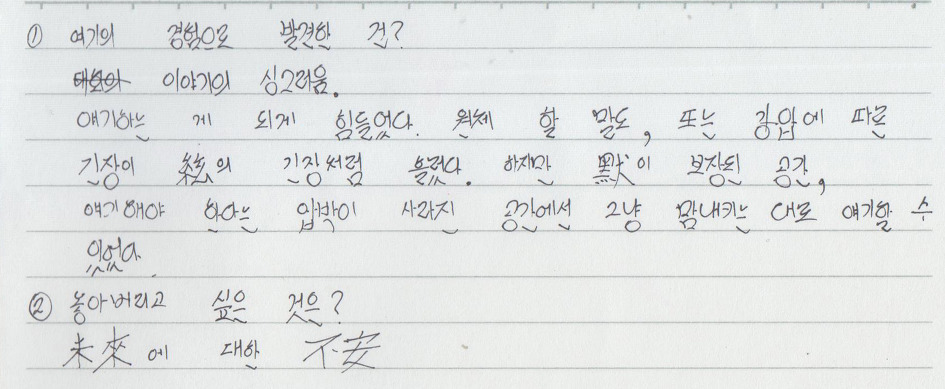 ① 여기의 경험으로 발견한 건?
이야기의 싱그러움.
얘기하는 게 되게 힘들었다. 원체 할 말도, 또는 강압에 따른
긴장이 의 긴장처럼 흘렀다. 하지만 默이 보장된 공간,
얘기해야 한다는 압박이 사라진 공간에서 그냥 맘내키는 대로 얘기할 수
있었다.
② 놓아버리고 싶은 것은?
未來에 대한 不安